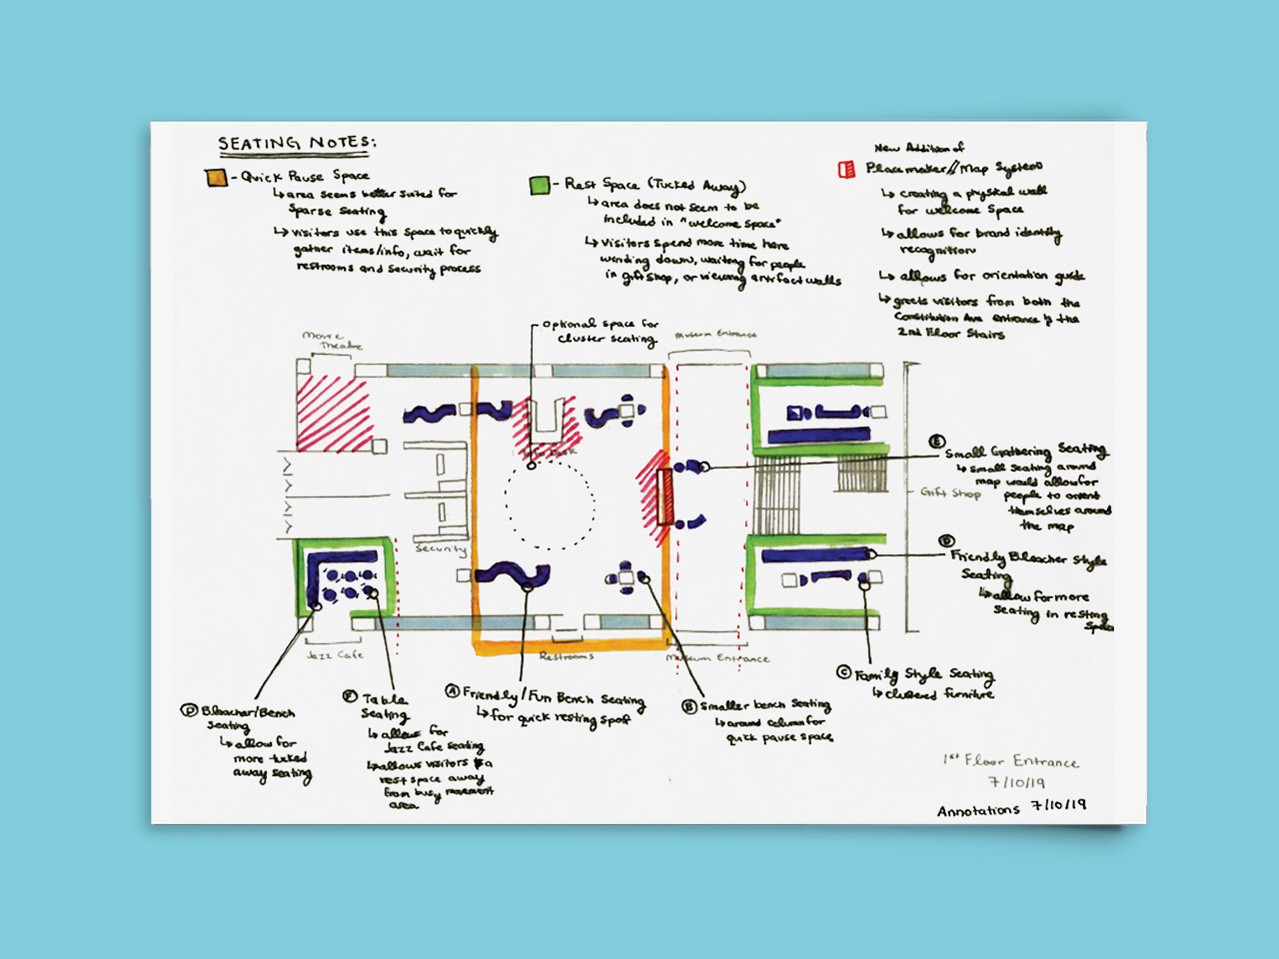 SEATING NOTES:
- Quick Pause Space
↳ area seems better suited for
sparse seating
↳ visitors use this space to quickly
gather items/info, wait for
restrooms and security process
- Rest Space (Tucked Away)
↳ area does not seem to be
included in "welcome space"
↳ visitors spend more time here
winding down, waiting for people
in gift shop, or viewing artifact walls
New Addition of
Placemaker // Map System
↳ creating a physical wall
for welcome space
↳ allows for brand identity
recognition
↳ allows for orientation guide
↳ greets visitors from both the
Constitution Ave entrance & the
2nd Floor Stairs
Optional space for
cluster seating
Movie
Theatre
Museum Entrance
Security
Gift Shop
Jazz Cafe
Restrooms
Museum Entrance
E Small Gathering Seating
↳ small seating around
map would allow for
people to orient
themselves around
the map
D Friendly Bleacher Style
Seating
↳ allow for more
seating in resting
space
C Family Style Seating
↳ clustered furniture
B Smaller bench seating
↳ around column for
quick pause space
A Friendly/Fun Bench Seating
↳ for quick resting spot
F Table
Seating
↳ allows for
Jazz Cafe seating
↳ allows visitors a
rest space away
from busy movement
area
D Bleacher/Bench
Seating
↳ allow for
more tucked
away seating
1st Floor Entrance
7/10/19
Annotations 7/10/19